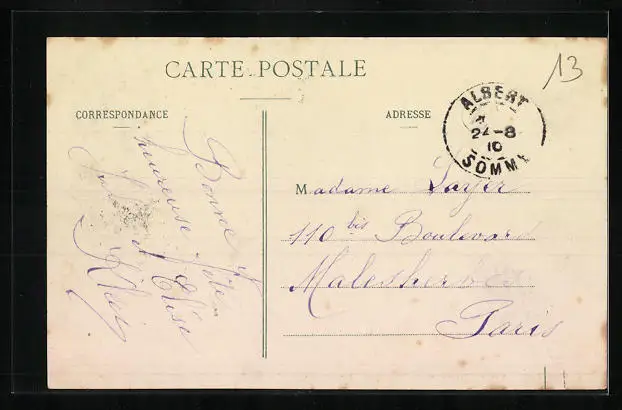 CARTE POSTALE
13
CORRESPONDANCE
ADRESSE
ALBERT
24-8
10
SOMME
Bonne &
heureuse fête
Élise
Madame
110 bis Boulevard
Malesherbes
Paris